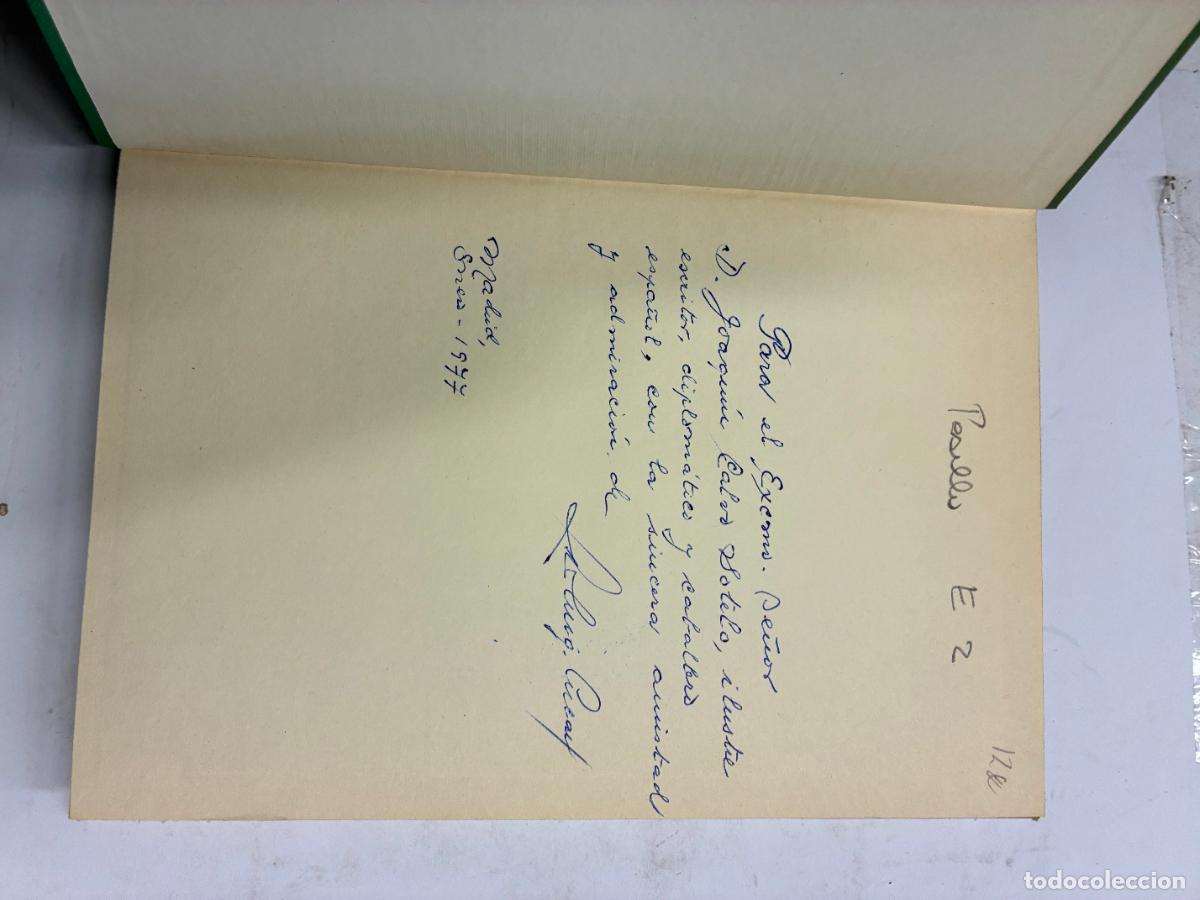 Pasillo E 2
12€
Para el Excmo. Señor
D. Joaquín Calvo Sotelo, ilustre
escritor, diplomático y caballero
español, con la sincera amistad
y admiración de
Madrid,
Enero-1977
todocoleccion